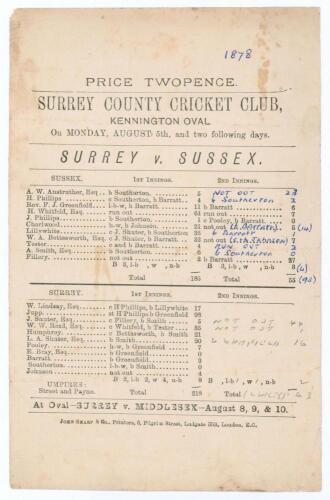 1878
PRICE TWOPENCE.
SURREY COUNTY CRICKET CLUB,
KENNINGTON OVAL
On MONDAY, AUGUST 5th, and two following days.
SURREY v. SUSSEX.
SUSSEX. 1ST INNINGS. 2ND INNINGS.
A. W. Anstruther, Esq. b Southerton 5 NOT OUT
H. Phillips c Southerton, b Barratt 4 b Southerton 2
Rev. F. J. Greenfield l-b-w, b Barratt 11 b Barratt 6
H. Whitfeld, Esq. run out 64 run out 7
J. Phillips b Southerton 1 c Pooley, b Barratt 0
Charlwood h-w, b Johnson 21 not out
Lillywhite c J. Shuter, b Southerton b Barratt
W. A. Bettesworth, Esq. c J. Shuter, b Barratt 32 not out
Tester c and b Barratt 4 RUN OUT
A. Smith, Esq. c Southerton, b Barratt b Southerton 0
Pillery not out 2 b Barratt
B 3, l-b , w , n-b 8
Total 185 55 (93)
SURREY. 1ST INNINGS. 2ND INNINGS.
W. Lindsay, Esq. c H Phillips, b Lillywhite 17
Jupp st H Phillips b Greenfield 98
J. Shuter, Esq. c Pillery, b Smith 5 NOT OUT
W. W. Read, Esq. c Whitfeld, b Tester 35 NOT OUT
Humphrey c Bettesworth, b Smith 21
L. A. Shuter, Esq. b Smith 20
Pooley h-w, b Greenfield 7
E. Bray, Esq. b Greenfield 0
Barratt b Greenfield 3
Southerton b Greenfield 0
Johnson not out 4
B 2, l-b 2, w 4, n-b 8 B , l-b / , w / , n-b 2
UMPIRES:
Street and Payne. Total 218 Total
At Oval—SURREY v. MIDDLESEX—August 8, 9, & 10.
JOHN SHARP & Co., Printers, 6, Pilgrim Street, Ludgate Hill, London, E.C.